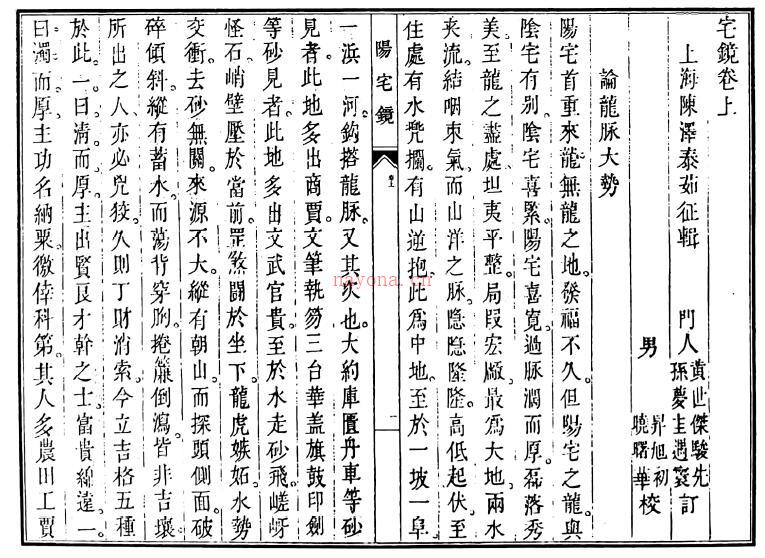 宅鏡卷上
上海陳澤泰茹征輯 門人 黃世傑駿先 孫夢圭遇 訂
男 昇旭初 曉曙華 校
論龍脉大勢
陽宅首重來龍。無龍之地。發福不久。但陽宅之龍。與
陰宅有别。陰宅喜緊。陽宅喜寬。過脉濶而厚。磊落秀
美。至龍之盡處。坦夷平整。局叚宏厰。最爲大地。兩水
夾流。結咽束氣。而山洋之脉。隱隱隆隆。高低起伏。至
住處有水兠攔。有山逆抱。此爲中地。至於一坡一阜
陽宅鏡 卷上 一
一浜一河。鈎搭龍脉。又其次也。大約庫匱舟車等砂
見者。此地多出商賈。文筆執笏。三台華盖。旗鼓印劍
等砂見者。此地多出文武官貴。至於水走砂飛。嵯岈
怪石。峭壁壓於當前。罡煞鬪於坐下。龍虎嫉妬。水勢
交衝。去砂無關。來源不大。縱有朝山。而探頭側面。破
碎傾斜。縱有蓄水。而蕩背穿胸。捲簾倒瀉。皆非吉壤。
所出之人。亦必兇狡。久則丁財消索。今立吉格五種
於此。一曰清而厚。主出賢良才幹之士。富貴綿遠。一
曰濁而厚。主功名納粟。徼倖科第。其人多農田工賈
nayona.cn